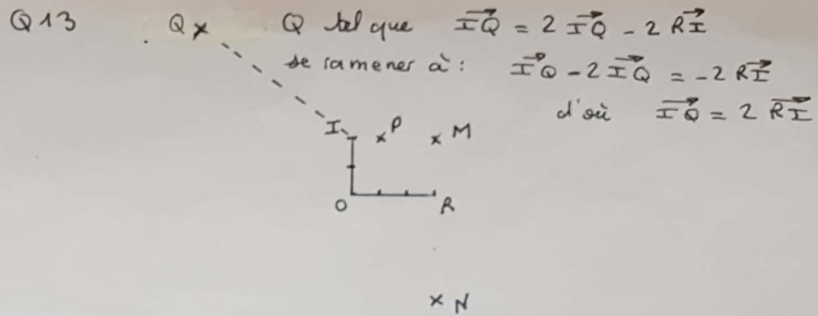 Q13 Q Q tel que IQ⃗ = 2 IQ⃗ - 2 RI⃗
se ramener à : IQ⃗ - 2 IQ⃗ = -2 RI⃗
d'où IQ⃗ = 2 RI⃗
I P M
O R
N